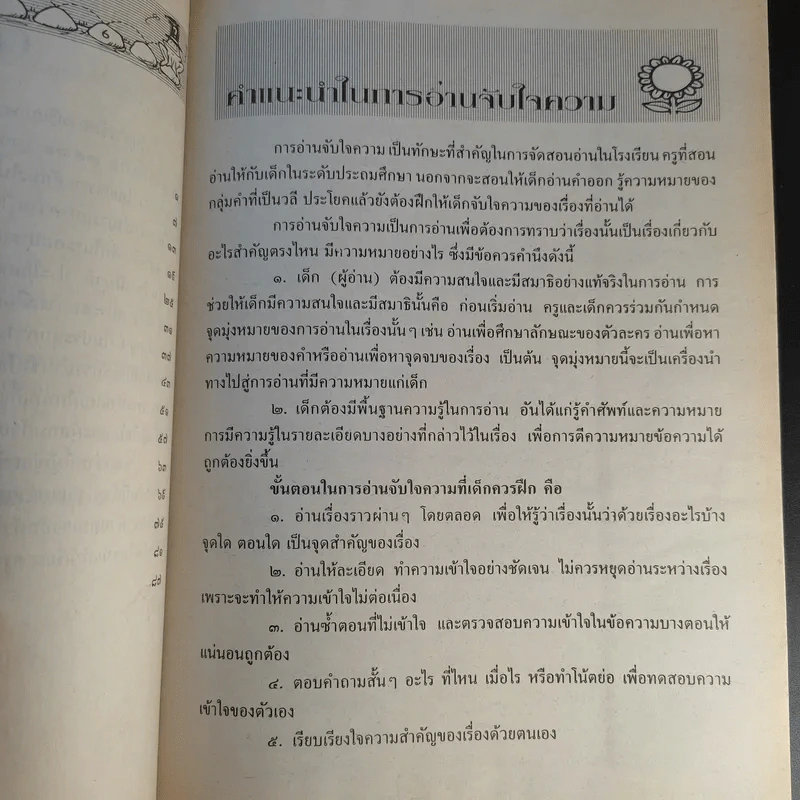 6
๑
๗
๑๓
๑๙
๒๕
๓๑
๓๗
๔๓
๕๑
๕๗
๖๓
๖๙
๗๕
๘๑
๘๗
คำแนะนำในการอ่านจับใจความ
การอ่านจับใจความ เป็นทักษะที่สำคัญในการจัดสอนอ่านในโรงเรียน ครูที่สอน
อ่านให้กับเด็กในระดับประถมศึกษา นอกจากจะสอนให้เด็กอ่านคำออก รู้ความหมายของ
กลุ่มคำที่เป็นวลี ประโยคแล้วยังต้องฝึกให้เด็กจับใจความของเรื่องที่อ่านได้
การอ่านจับใจความเป็นการอ่านเพื่อต้องการทราบว่าเรื่องนั้นเป็นเรื่องเกี่ยวกับ
อะไรสำคัญตรงไหน มีความหมายอย่างไร ซึ่งมีข้อควรคำนึงดังนี้
๑. เด็ก (ผู้อ่าน) ต้องมีความสนใจและมีสมาธิอย่างแท้จริงในการอ่าน การ
ช่วยให้เด็กมีความสนใจและมีสมาธินั้นคือ ก่อนเริ่มอ่าน ครูและเด็กควรร่วมกันกำหนด
จุดมุ่งหมายของการอ่านในเรื่องนั้นๆ เช่น อ่านเพื่อศึกษาลักษณะของตัวละคร อ่านเพื่อหา
ความหมายของคำหรืออ่านเพื่อหาจุดจบของเรื่อง เป็นต้น จุดมุ่งหมายนี้จะเป็นเครื่องนำ
ทางไปสู่การอ่านที่มีความหมายแก่เด็ก
๒. เด็กต้องมีพื้นฐานความรู้ในการอ่าน อันได้แก่รู้คำศัพท์และความหมาย
การมีความรู้ในรายละเอียดบางอย่างที่กล่าวไว้ในเรื่อง เพื่อการตีความหมายข้อความได้
ถูกต้องยิ่งขึ้น
ขั้นตอนในการอ่านจับใจความที่เด็กควรฝึก คือ
๑. อ่านเรื่องราวผ่านๆ โดยตลอด เพื่อให้รู้ว่าเรื่องนั้นว่าด้วยเรื่องอะไรบ้าง
จุดใด ตอนใด เป็นจุดสำคัญของเรื่อง
๒. อ่านให้ละเอียด ทำความเข้าใจอย่างชัดเจน ไม่ควรหยุดอ่านระหว่างเรื่อง
เพราะจะทำให้ความเข้าใจไม่ต่อเนื่อง
๓. อ่านซ้ำตอนที่ไม่เข้าใจ และตรวจสอบความเข้าใจในข้อความบางตอนให้
แน่นอนถูกต้อง
๔. ตอบคำถามสั้นๆ อะไร ที่ไหน เมื่อไร หรือทำโน้ตย่อ เพื่อทดสอบความ
เข้าใจของตัวเอง
๕. เรียบเรียงใจความสำคัญของเรื่องด้วยตนเอง